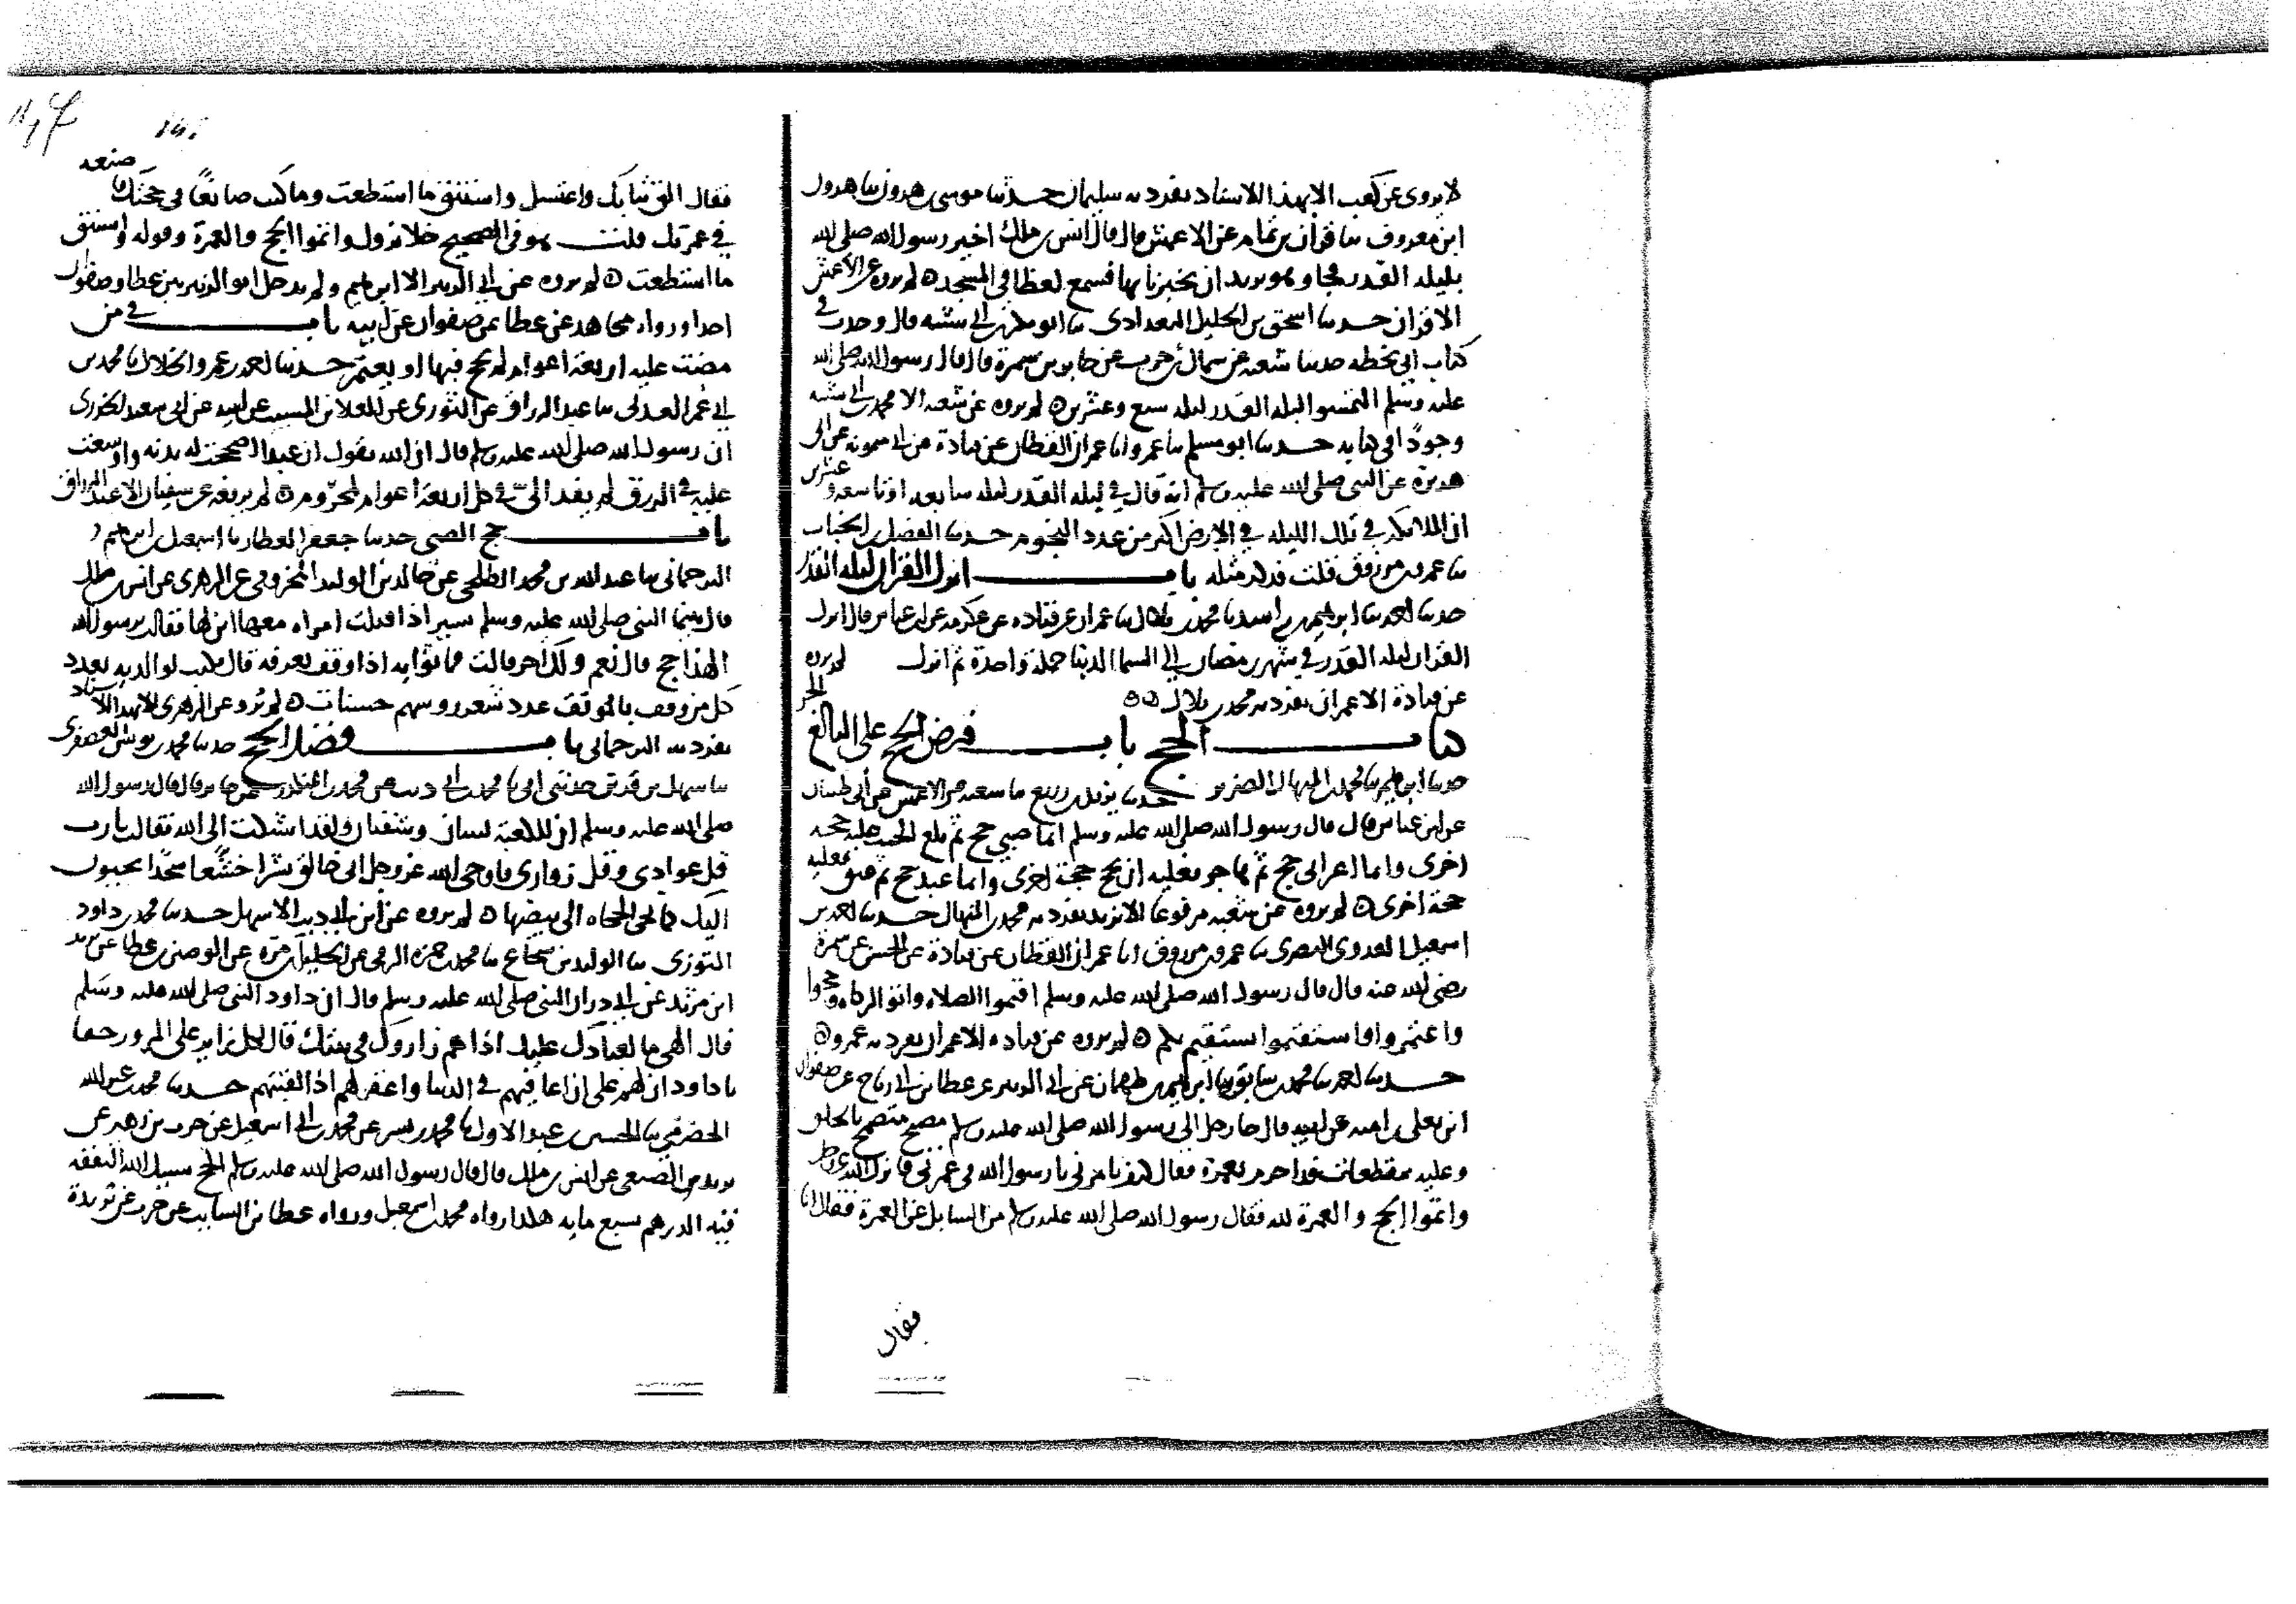 لا يروى عن كعب الا بهذا الاسناد تفرد به سليمان حدثنا موسى بن هرون ثنا هرون
ابن معروف ثنا قران بن تمام عن الاعمش قال قال انس بن ملك اخبر رسول الله صلى الله
بليله القدر فجا وهو يريد ان يخبرنا بها فسمع لغطا في المسجد لم يروه عن الاعمش
الا قران حدثنا اسحق بن الخليل البغدادى ثنا ابو بكر بن ابي شيبه قال وجدت في
كتاب ابى بخطه حدثنا شعبه عن سماك بن حرب عن جابر بن سمرة قال قال رسول الله صلى الله
عليه وسلم التمسوا ليله القدر ليله سبع وعشرين لم يروه عن شعبه الا محمد بن ابي شيبه
وجودا في كتابه حدثنا ابو مسلم ثنا عمرو انا عمران القطان عن قتادة عن ابي ميمونه عن ابى
هريرة عن النبي صلى الله عليه وسلم انه قال في ليله القدر ليله سابعه او تاسعه وعشرين
ان الملائكة في تلك الليله في الارض اكثر من عدد النجوم حدثنا الفضل بن الحباب
ثنا عمرو بن مرزوق قلت فذكر مثله باب انزل القران ليله القدر
حدثنا احمد ثنا ابراهيم بن راشد ثنا محمد بن بلال ثنا عمران عن قتاده عن عكرمه عن ابن عباس قال انزل
القران ليله القدر في شهر رمضان الي السما الدنيا جملة واحدة ثم انزل لم يروه
عن قتادة الا عمران تفرد به محمد بن بلال
كتاب الحج باب فرض الحج على البالغ الحر
حدثنا ابراهيم ثنا محمد بن المنهال الضرير حدثنا يزيد بن زريع ثنا شعبه عن الاعمش عن أبي ظبيان
عن ابن عباس قال قال رسول الله صلى الله عليه وسلم ايما صبي حج ثم بلغ الحنث عليه حجه
اخرى وايما اعرابى حج ثم هاجر فعليه ان يحج حجة اخرى وايما عبد حج ثم عتق فعليه
حجة اخرى لم يروه عن شعبه مرفوعا الا يزيد تفرد به محمد بن المنهال حدثنا احمد بن
اسمعيل العدوى البصرى ثنا عمرو بن مرزوق انا عمران القطان عن قتادة عن الحسن عن سمرة
رضى الله عنه قال قال رسول الله صلى الله عليه وسلم اقيموا الصلاه واتوا الزكاه وحجوا
واعتمروا واستقيموا يستقيم بكم لم يروه عن قتاده الا عمران تفرد به عمرو
حدثنا احمد ثنا محمد بن سابق ثنا ابراهيم بن طهمان عن ابي الزبير عن عطا بن ابي رباح عن صفوان
ابن يعلى بن اميه عن ابيه قال جا رجل الى رسول الله صلى الله عليه وسلم متضمخ بالخلوق
وعليه مقطعات قد احرم بعمرة فقال كيف تامرنى يا رسول الله في عمرتى فانزل الله عز وجل
واتموا الحج والعمرة لله فقال رسول الله صلى الله عليه وسلم من السايل عن العمرة فقال انا
فقال
صنعه
فقال الق ثيابك واغتسل واستنق ما استطعت وما كنت صانعا في حجتك
في عمرتك قلت هو في الصحيح خلا نزول واتموا الحج والعمرة وقوله واستنق
ما استطعت لم يروه عن ابي الزبير الا ابراهيم ولم يدخل ابو الزبير بين عطا وصفوان
احدا ورواه مجاهد عن عطا عن صفوان عن ابيه باب في من
مضت عليه اربعة اعوام لم يحج فيها او يعتمر حدثنا احمد بن عمرو الخلال ثنا محمد بن
ابي عمر العدنى ثنا عبد الرزاق عن الثورى عن العلا بن المسيب عن ابيه عن ابى سعيد الخدرى
ان رسول الله صلى الله عليه وسلم قال ان الله يقول ان عبدا اصححت له بدنه واوسعت
عليه في الرزق لم يفد الىّ في كل اربعة اعوام لمحروم لم يرفعه عن سفيان الا عبد الرزاق
باب حج الصبي حدثنا جعفر العطار ثنا اسمعيل بن ابرهيم
الترجمانى ثنا عبد الله بن محمد الطلحي عن خالد بن الوليد المخزومي عن الزهرى عن انس بن ملك
قال بينما النبي صلى الله عليه وسلم يسير اذ اقبلت امراه معها ابن لها فقالت يرسول الله
الهذا حج قال نعم ولك اجر قالت فما ثوابه اذا وقف بعرفه قال يكتب لوالديه بعدد
كل من وقف بالموقف عدد شعر روسهم حسنات لم يرو عن الزهرى الا بهذا الاسناد
تفرد به الترجمانى باب فضل الحج حدثنا محمد بن يونس العصفرى
ثنا سهل بن قرين حدثنى ابى ثنا محمد بن ابي ذيب عن محمد بن المنكدر عن جابر قال قال رسول الله
صلى الله عليه وسلم ان للكعبة لسان وشفتان ولقد اشتكت الى الله فقالت يا رب
قل عوادى وقل زوارى فاوحى الله عز وجل انى خالق بشرا خشعا سجدا يحبون
اليك كما تحن الحمامه الى بيضها لم يروه عن ابن ابي ذيب الا سهل حدثنا محمد بن داود
التوزى ثنا الوليد بن شجاع ثنا محمد بن حمزه الرقي عن الخليل بن مره عن الوضين بن عطا عن يزيد
ابن مرثد عن ابي ذر ان النبي صلى الله عليه وسلم قال ان داود النبي صلى الله عليه وسلم
قال الهي ما لعبادك عليك اذا هم زاروك في بيتك قال لكل زاير على المزور حقا
يا داود ان لهم علي ان اعافيهم في الدنيا واغفر لهم اذا لقيتهم حدثنا محمد بن عبد الله
الحضرمي ثنا الحسين بن عبد الاول ثنا محمد بن بشر عن محمد بن ابي اسمعيل عن حرب بن زهير عن
يزيد بن الضبعى عن انس بن ملك قال قال رسول الله صلى الله عليه وسلم الحج سبيل الله النفقه
فيه الدرهم بسبع مايه هكذا رواه محمد بن اسمعيل ورواه عطا بن السايب عن حرب عن بريدة